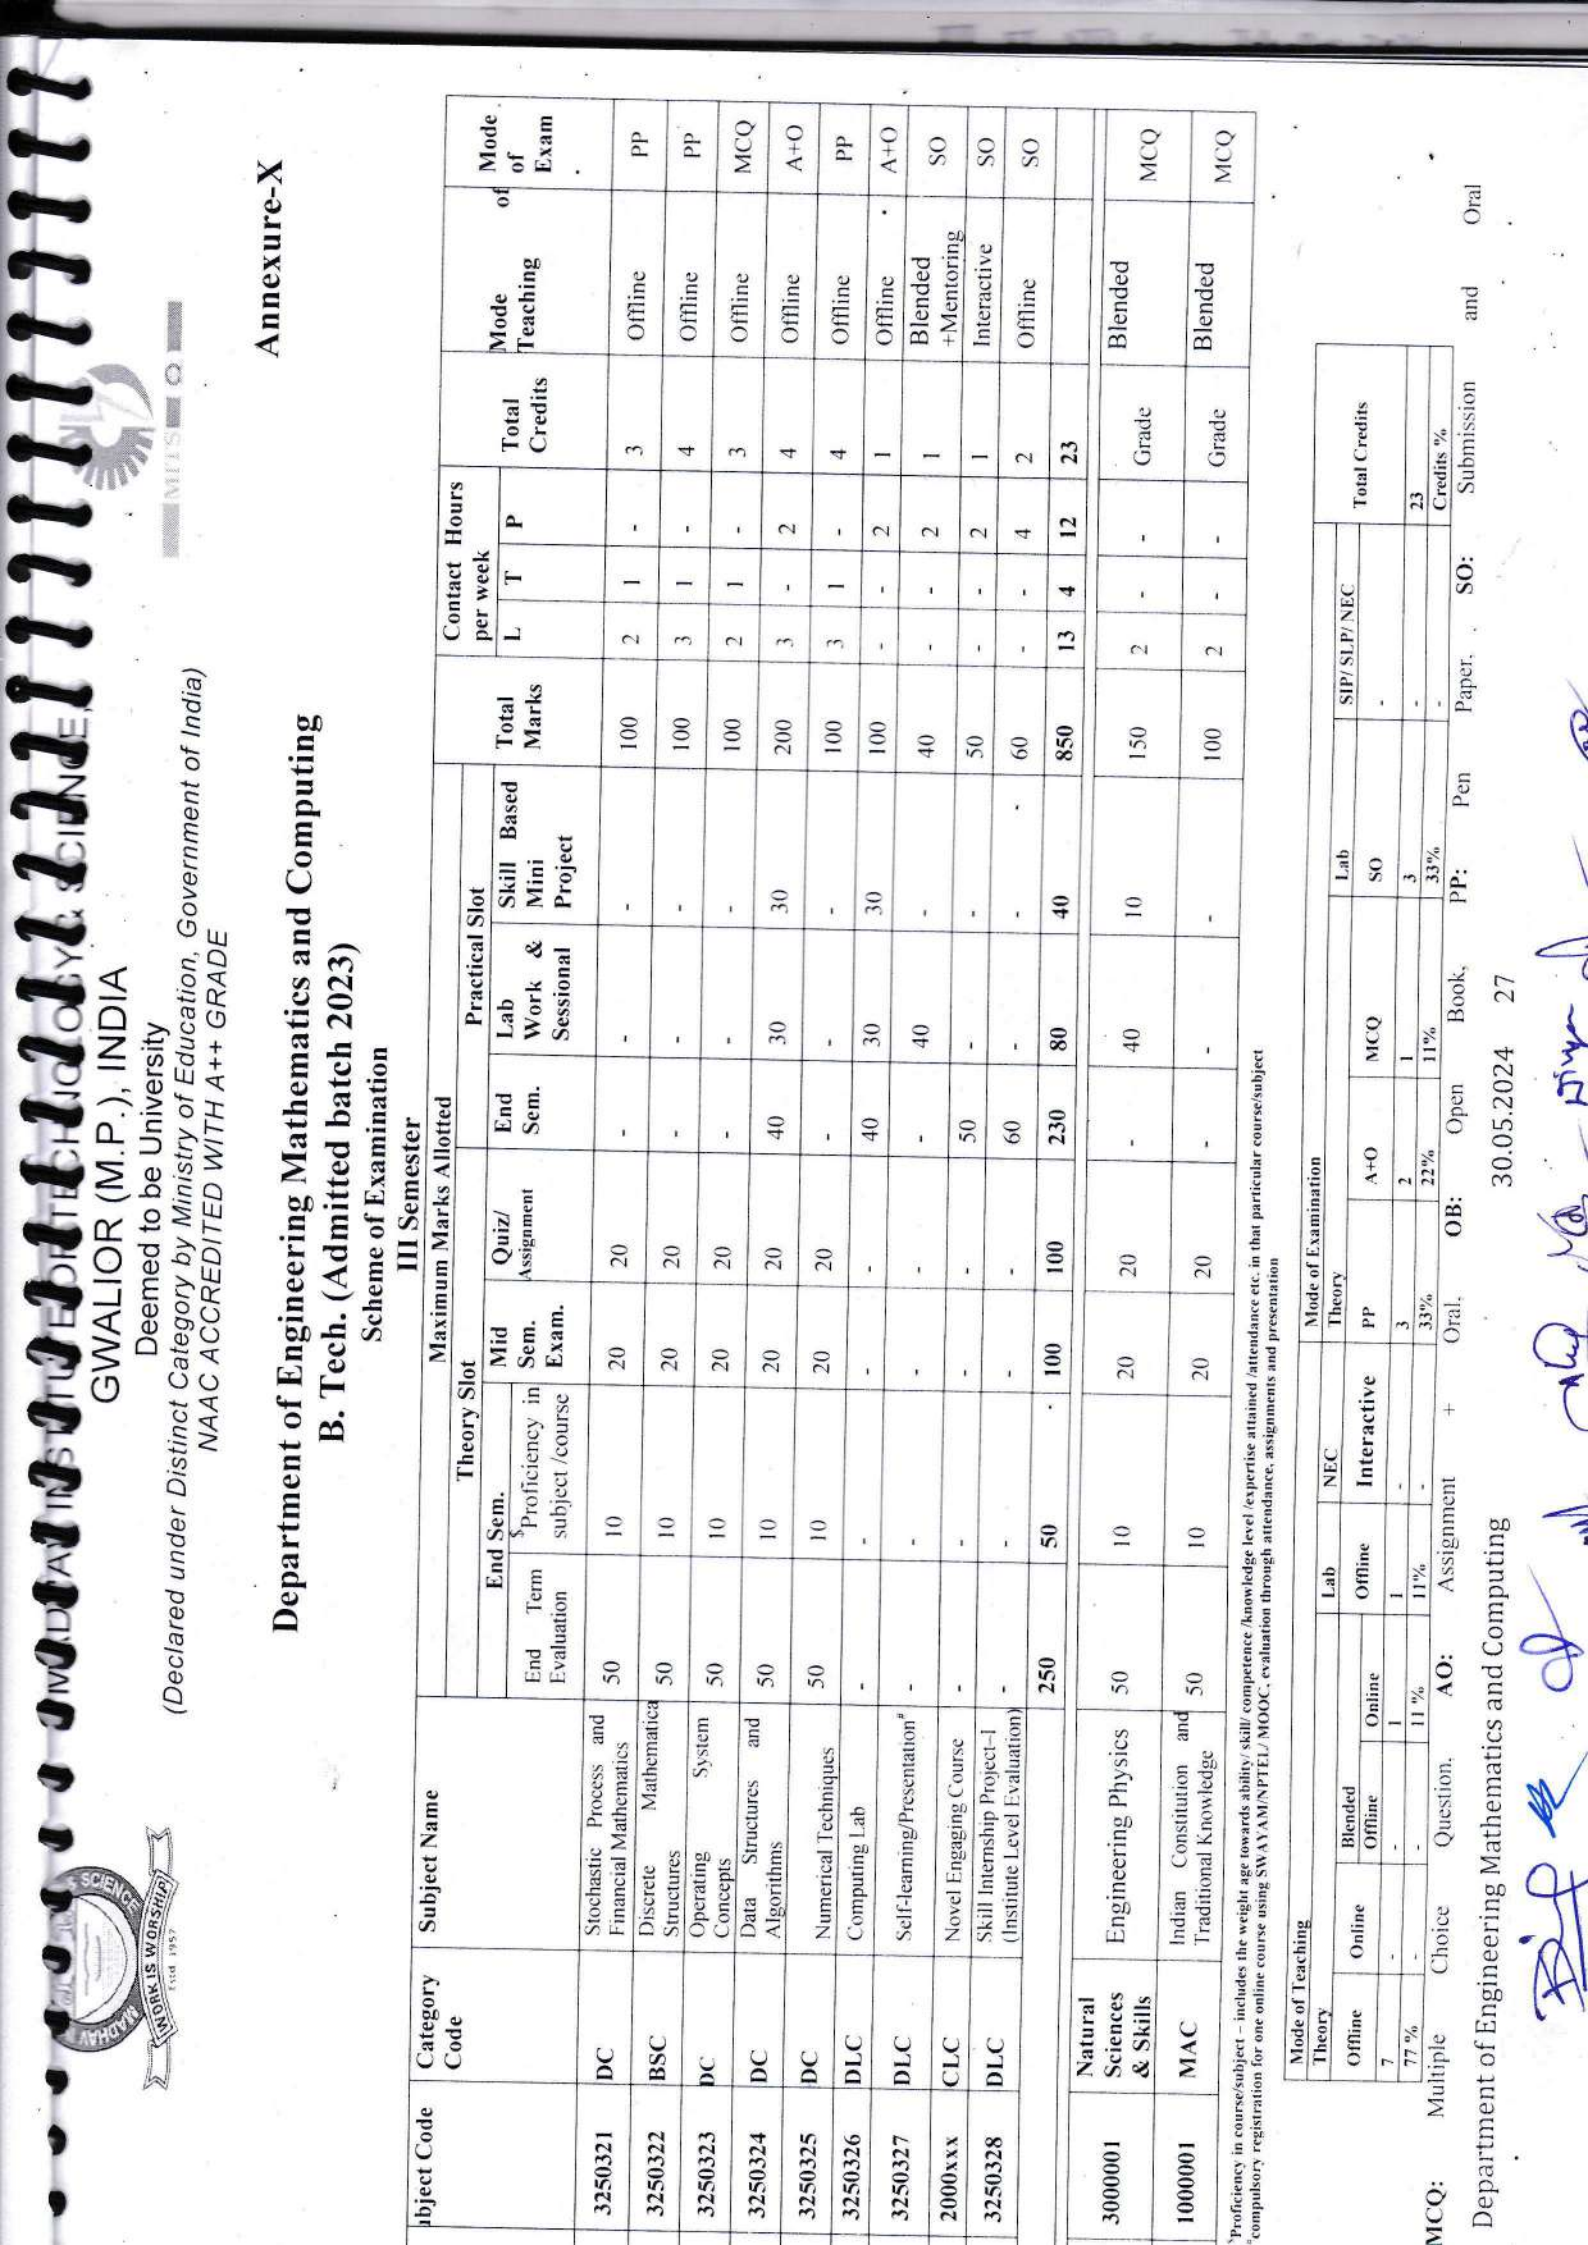 MADHAV INSTITUTE OF TECHNOLOGY & SCIENCE,
GWALIOR (M.P.), INDIA
Deemed to be University
(Declared under Distinct Category by Ministry of Education, Government of India)
NAAC ACCREDITED WITH A++ GRADE
WORK IS WORSHIP
Estd 1957
Annexure-X
Department of Engineering Mathematics and Computing
B. Tech. (Admitted batch 2023)
Scheme of Examination
III Semester
ubject Code Category Code Subject Name Maximum Marks Allotted Total Marks Contact Hours per week Total Credits Mode of Teaching Mode of Exam
Theory Slot Practical Slot
End Sem. Mid Sem. Exam. Quiz/ Assignment End Sem. Lab Work & Sessional Skill Based Mini Project L T P
End Term Evaluation $Proficiency in subject /course
3250321 DC Stochastic Process and Financial Mathematics 50 10 20 20 - - - 100 2 1 - 3 Offline PP
3250322 BSC Discrete Mathematica Structures 50 10 20 20 - - - 100 3 1 - 4 Offline PP
3250323 DC Operating System Concepts 50 10 20 20 - - - 100 2 1 - 3 Offline MCQ
3250324 DC Data Structures and Algorithms 50 10 20 20 40 30 30 200 3 - 2 4 Offline A+O
3250325 DC Numerical Techniques 50 10 20 20 - - - 100 3 1 - 4 Offline PP
3250326 DLC Computing Lab - - - - 40 30 30 100 - - 2 1 Offline A+O
3250327 DLC Self-learning/Presentation# - - - - - 40 - 40 - - 2 1 Blended +Mentoring SO
2000xxx CLC Novel Engaging Course - - - - 50 - - 50 - - 2 1 Interactive SO
3250328 DLC Skill Internship Project–I (Institute Level Evaluation) - - - - 60 - - 60 - - 4 2 Offline SO
250 50 100 100 230 80 40 850 13 4 12 23
3000001 Natural Sciences & Skills Engineering Physics 50 10 20 20 - 40 10 150 2 - - Grade Blended MCQ
1000001 MAC Indian Constitution and Traditional Knowledge 50 10 20 20 - - - 100 2 - - Grade Blended MCQ
$Proficiency in course/subject – includes the weight age towards ability/ skill/ competence /knowledge level /expertise attained /attendance etc. in that particular course/subject
#compulsory registration for one online course using SWAYAM/NPTEL/ MOOC, evaluation through attendance, assignments and presentation
Mode of Teaching Mode of Examination Total Credits
Theory Lab NEC Theory Lab SIP/ SLP/ NEC
Offline Online Blended Offline Interactive PP A+O MCQ SO
Offline Online
7 - - 1 1 - 3 2 1 3 - 23
77 % - - 11 % 11% - 33% 22% 11% 33% - Credits %
MCQ: Multiple Choice Question. AO: Assignment + Oral. OB: Open Book, PP: Pen Paper, SO: Submission and Oral
30.05.2024 27
Department of Engineering Mathematics and Computing